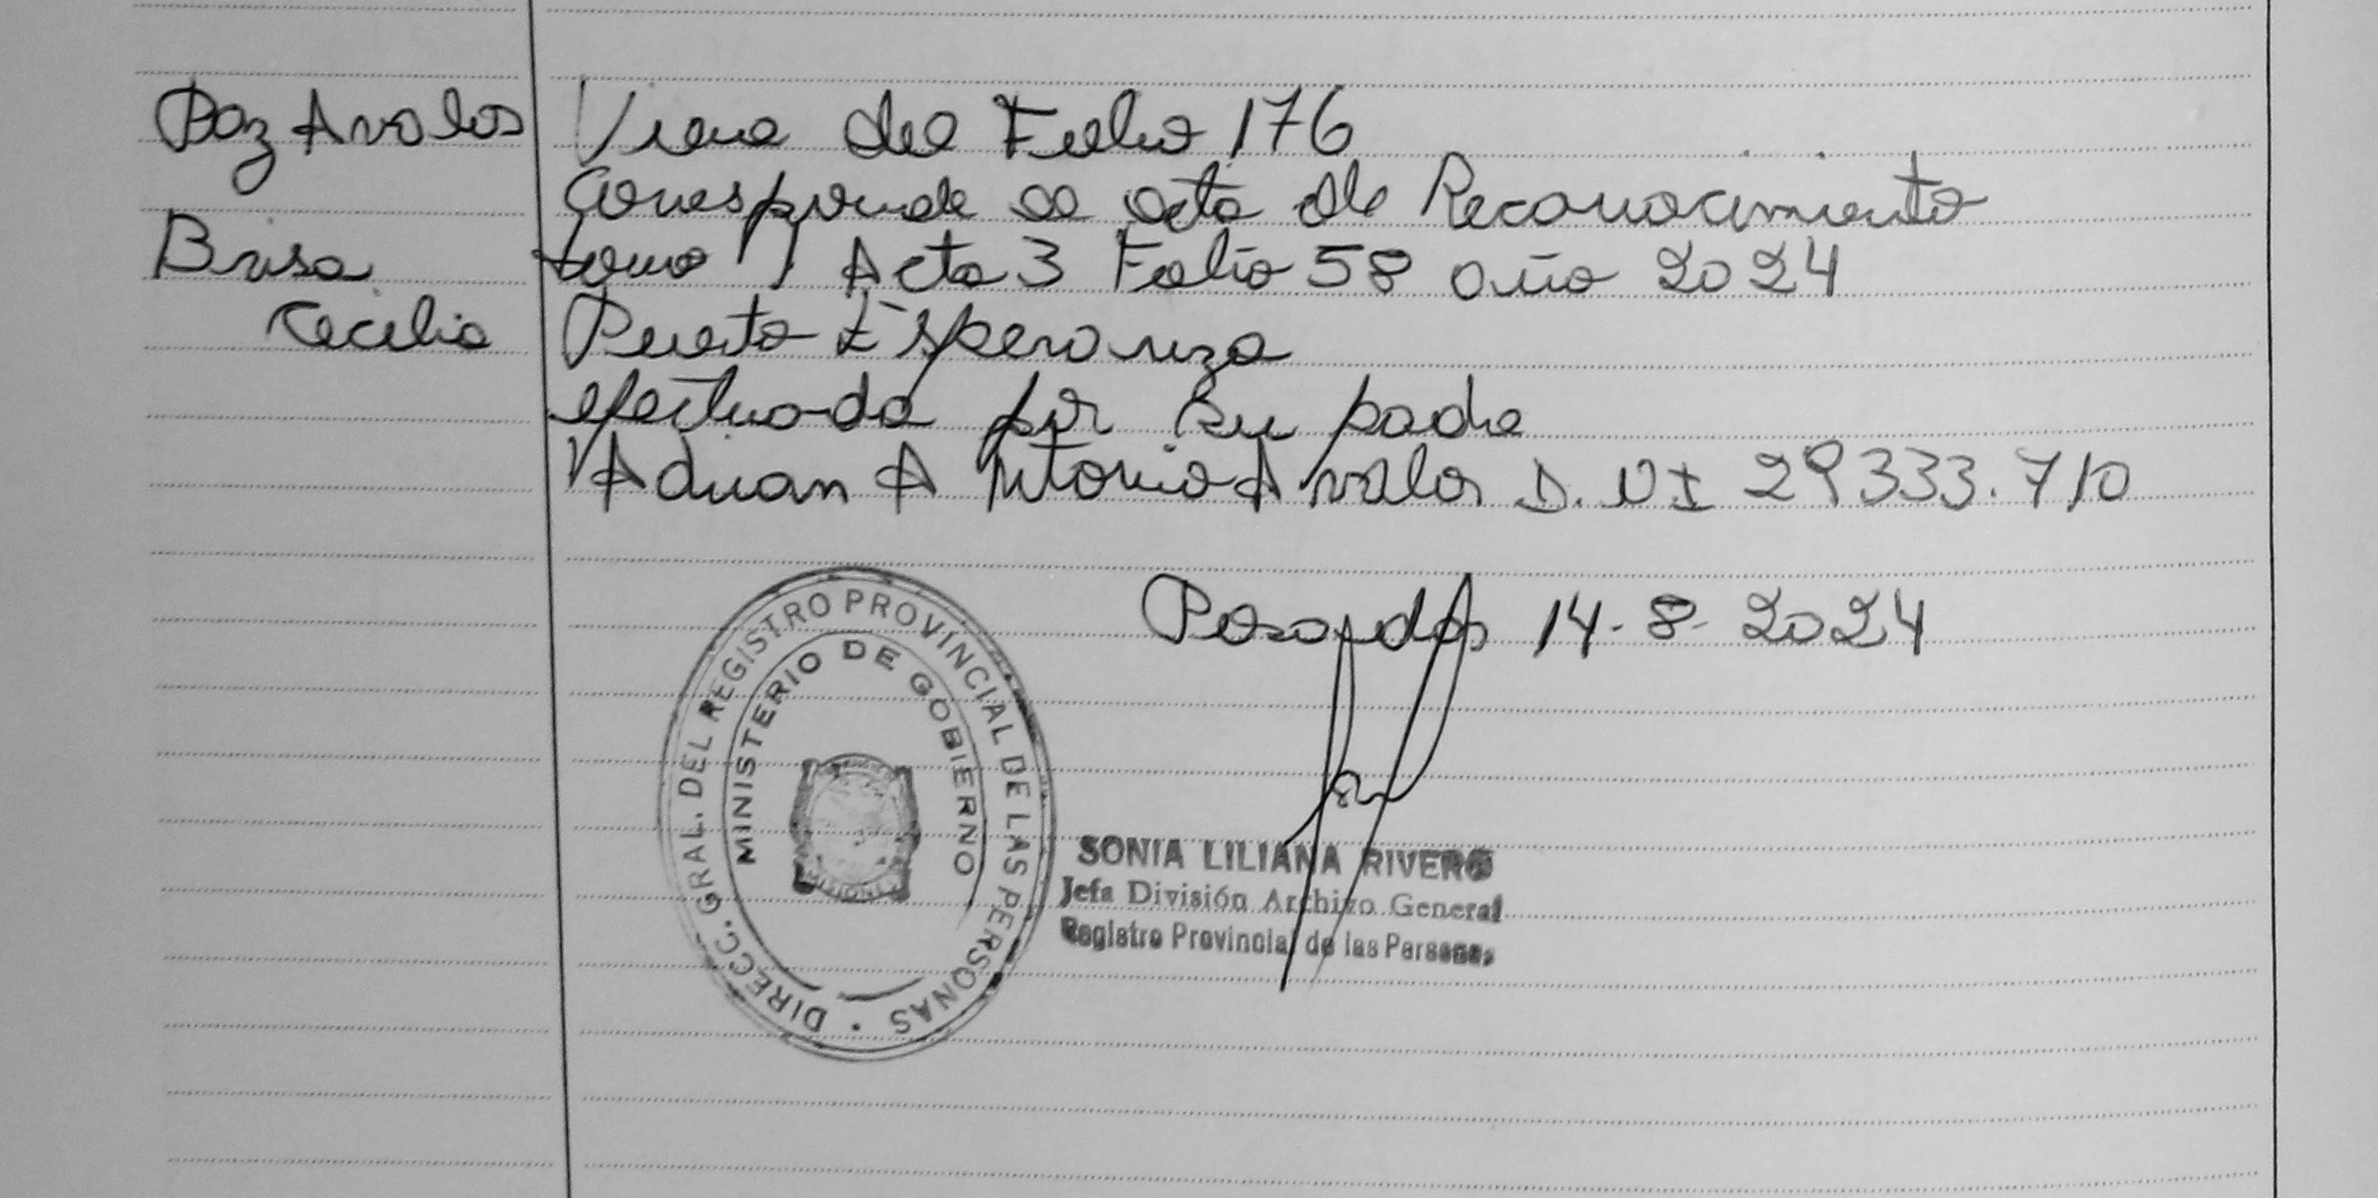 Paz Avalos
Brisa
Cecilia
Viene del Folio 176
Corresponde al acta de Reconocimiento
tomo 1 Acta 3 Folio 58 año 2024
Puerto Esperanza
efectuada por su padre
Adrian Antonio Avalos D.N.I 29333.710
Posadas 14-8-2024
DIRECC. GRAL. DEL REGISTRO PROVINCIAL DE LAS PERSONAS
MINISTERIO DE GOBIERNO
MISIONES
SONIA LILIANA RIVERO
Jefa División Archivo General
Registro Provincial de las Personas